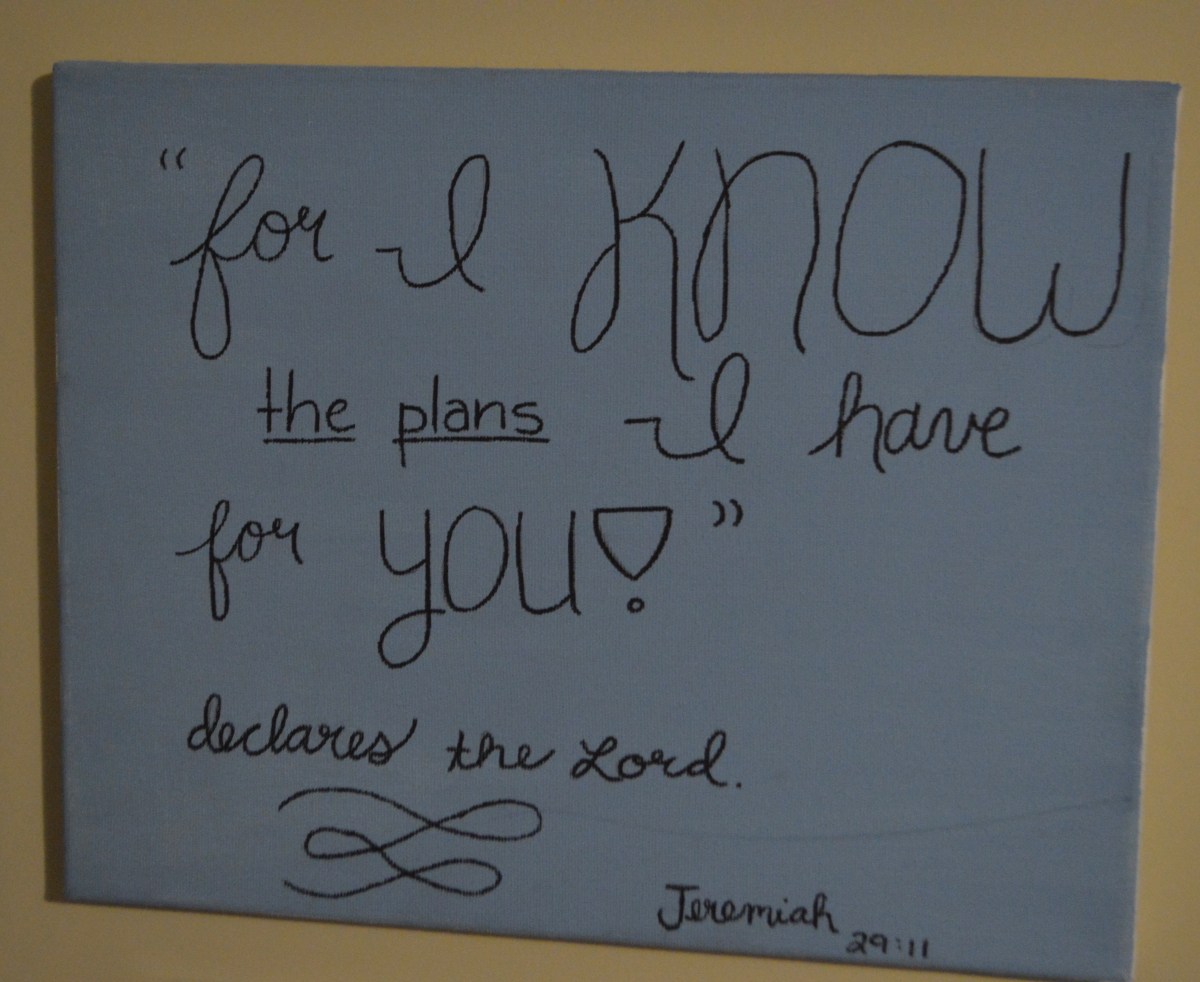 “for I KNOW
the plans I have
for YOU!”
declares the Lord.
Jeremiah
29:11